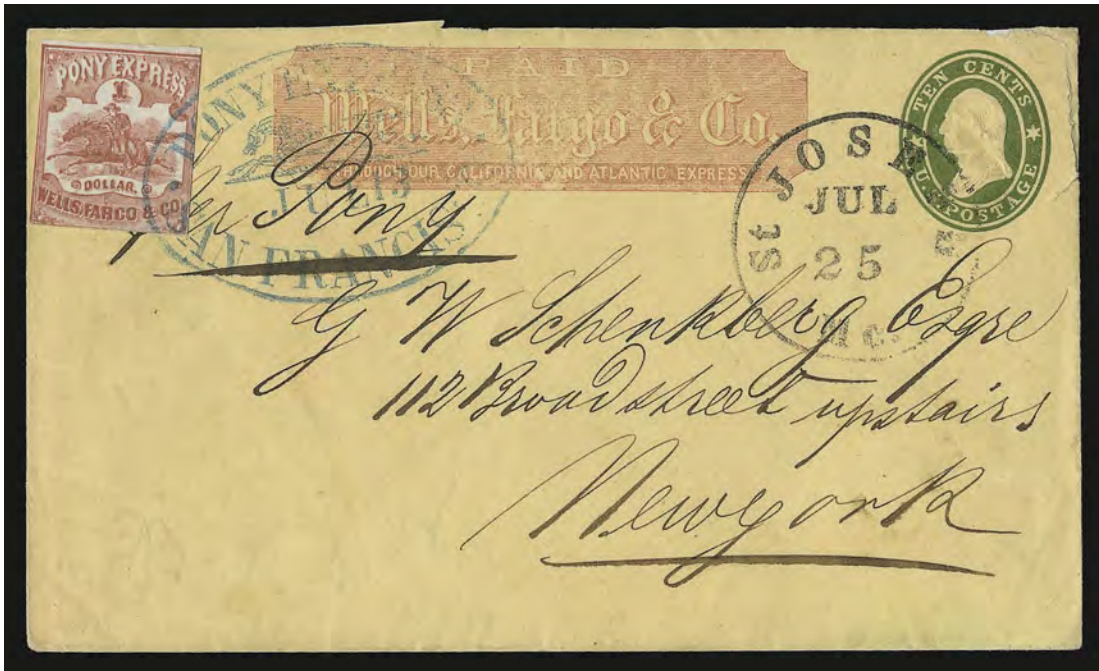 PONY EXPRESS
1
DOLLAR.
WELLS, FARGO & CO.
PONY
JUL 13
SAN FRANCIS
PAID
Wells, Fargo & Co.
THROUGH OUR CALIFORNIA AND ATLANTIC EXPRESS
TEN CENTS
U.S. POSTAGE
St JOSEPH
JUL
25
Mo.
Per Pony
G W Schenkberg Esqre
112 Broad street upstairs
New york